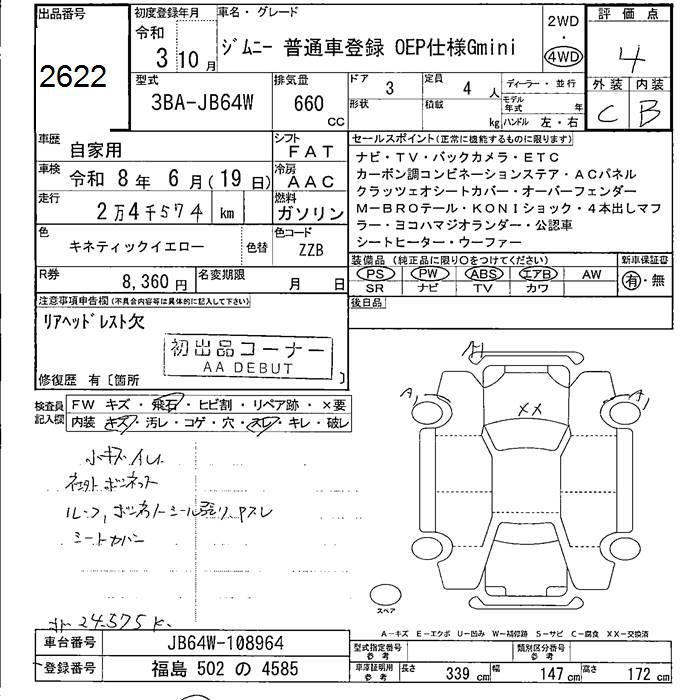 出品番号
2622
初度登録年月
令和
3 10 月
車名・グレード
ジムニー 普通車登録 OEP仕様Gmini
2WD
・
4WD
評価点
4
外装 内装
C B
型式
3BA-JB64W
排気量
660
CC
ドア
3
定員
4 人
ディーラー・並行
形状
積載
kg
モデル年式 年
ハンドル 左・右
車歴
自家用
シフト
FAT
車検
令和 8 年 6 月(19 日)
冷房
AAC
走行
2万4千574 km
燃料
ガソリン
色
キネティックイエロー
色替
色コード
ZZB
R券
8,360 円
名変期限
月 日
セールスポイント(正常に機能するものに限ります)
ナビ・TV・バックカメラ・ETC
カーボン調コンビネーションステア・ACパネル
クラッツェオシートカバー・オーバーフェンダー
M-BROテール・KONIショック・4本出しマフ
ラー・ヨコハマジオランダー・公認車
シートヒーター・ウーファー
装備品(純正品に限り○をつけてください)
新車保証書
PS PW ABS エアB AW
SR ナビ TV カワ
有・無
後日品
注意事項申告欄(不具合内容等は具体的に記入して下さい)
リアヘッドレスト欠
初出品コーナー
AA DEBUT
修復歴 有〔箇所 〕
検査員
記入欄
FW キズ・飛石・ヒビ割・リペア跡・×要
内装 キズ・汚レ・コゲ・穴・スレ・キレ・破レ
小キズ
ルーフ,ボンネットシール張り
シートカバー
24.575K
A
A1
XX
スペア
A-キズ E-エクボ U-凹み W-補修跡 S-サビ C-腐食 XX-交換済
車台番号
JB64W-108964
登録番号
福島 502 の 4585
型式指定番号
参考
類別区分番号
参考
車庫証明用
参考
長さ 339 cm 幅 147 cm 高さ 172 cm